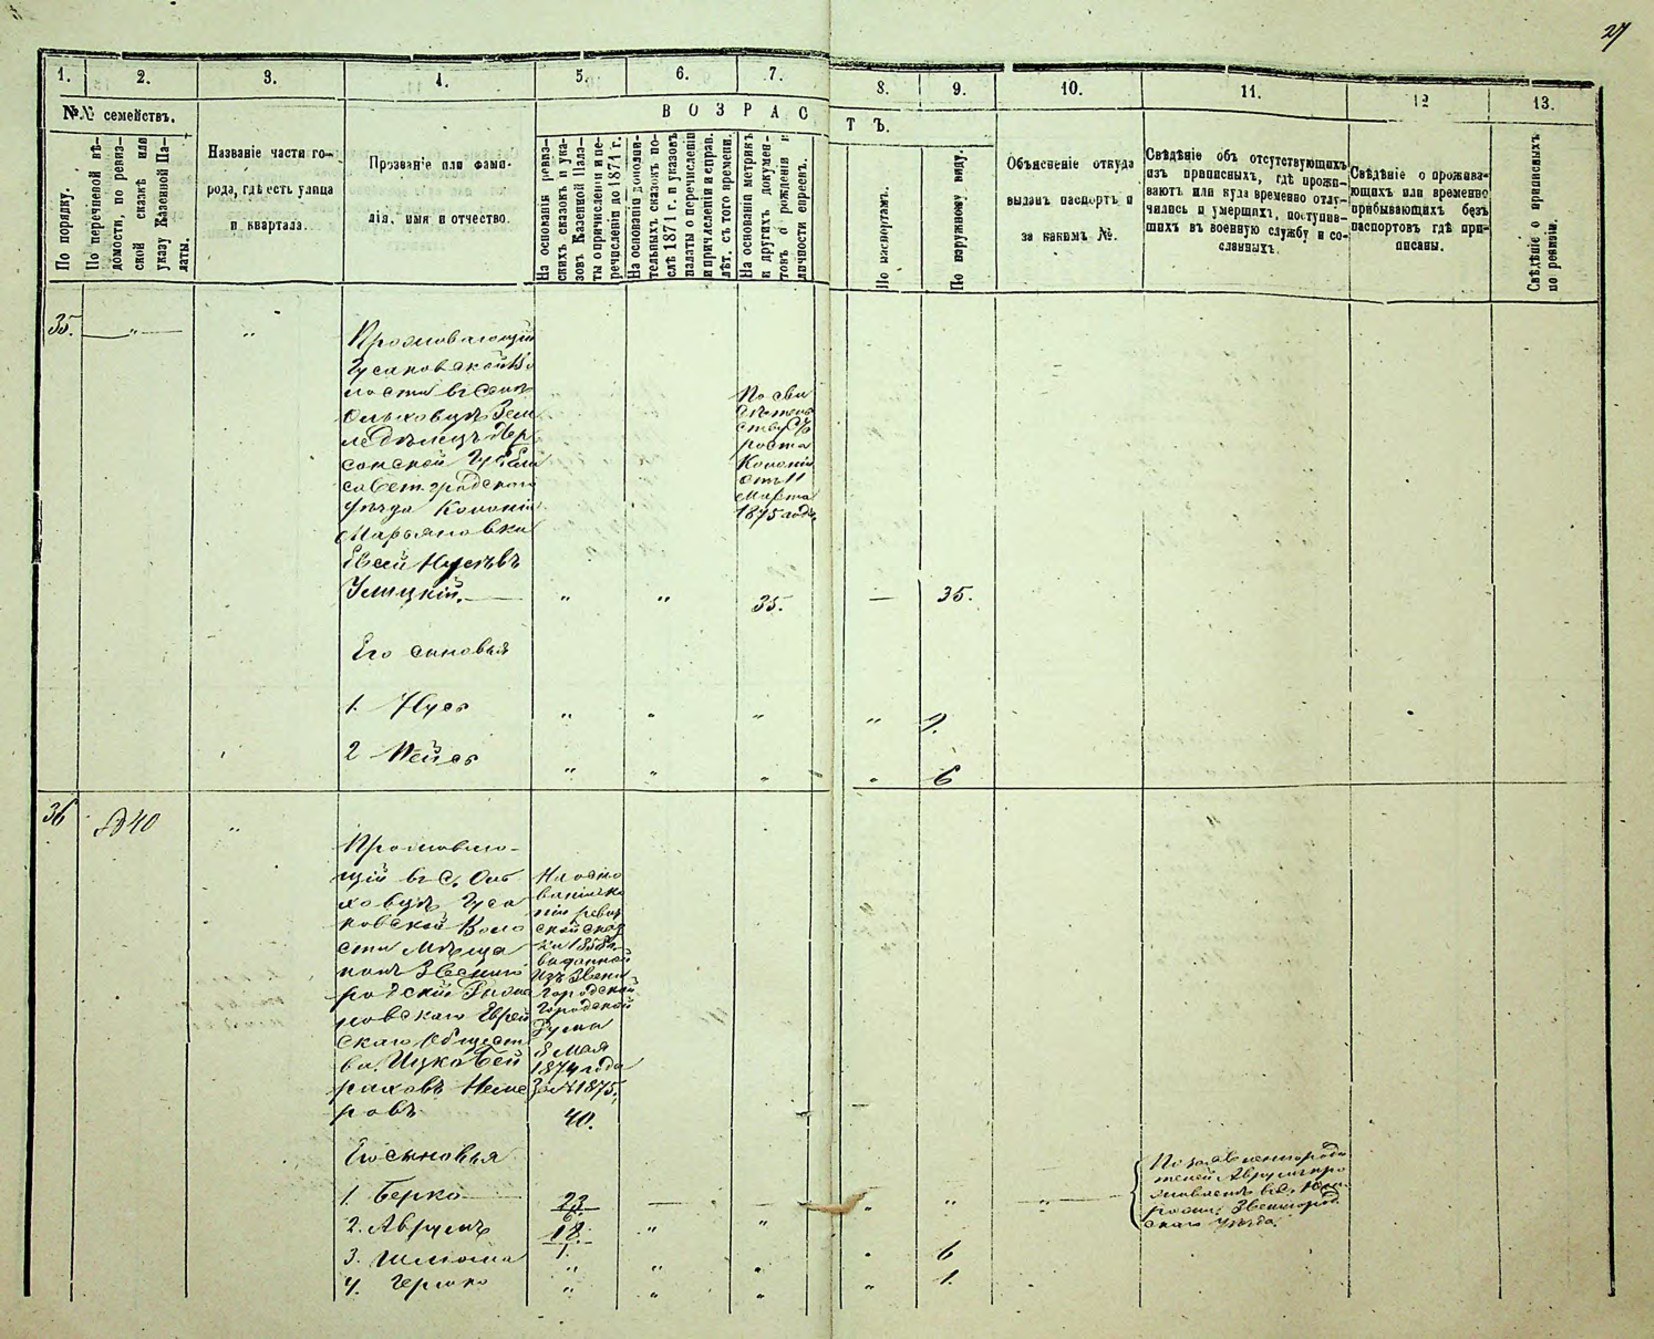 27
1. 2. 3. 4. 5. 6. 7. 8. 9. 10. 11. 12 13.
№№ семействъ.
По порядку.
По перечневой вѣ-
домости, по ревиз-
ской сказкѣ или
указу Казенной Па-
латы.
Названіе части го-
рода, гдѣ есть улица
и квартала.
Прозваніе или фами-
лія, имя и отчество.
ВОЗРАСТЪ.
На основаніи ревиз-
скихъ сказокъ и ука-
зовъ Казенной Пала-
ты о причисленіи и пе-
речисленіи до 1871 г.
На основаніи дополни-
тельныхъ сказокъ по-
слѣ 1871 г. и указовъ
палаты о перечисленіи
и причисленіи и справ.
лѣт. съ того времени.
На основаніи метрикъ
и другихъ докумен-
товъ о рожденіи и
личности евреевъ.
По паспортамъ.
По наружному виду.
Объясненіе откуда
выданъ паспортъ и
за какимъ №.
Свѣдѣніе объ отсутствующихъ
изъ приписныхъ, гдѣ прожи-
ваютъ или куда временно отлу-
чились и умершихъ, поступив-
шихъ въ военную службу и со-
сланныхъ.
Свѣдѣніе о прожива-
ющихъ или временно
прибывающихъ безъ
паспортовъ гдѣ при-
писаны.
Свѣдѣніе о приписныхъ
по ревизіи.
35. — „ — „
Проживающій
Гусаковской Во
лости въ Селѣ
Ольховцѣ Зем
ледѣлецъ Хер
сонской Губ. Ели
саветградского
уѣзда Колоніи
Марьяновки
Евсей Нусевъ
Умицкій. — „ „ 35. — 35.
По сви
дѣтель
ству Ш
роста
Колоніи
отъ 11
Марта
1875 года
Его сыновья
1. Нусъ „ „ „ „ 9.
2 Мейсъ „ „ „ „ 6
36 №40 „
Прожива
ющій въ С. Оль
ховцѣ Гуса
ковской Воло
сти Мѣща
нинъ Звениго
родскій
новскаго Еврей
скаго общест
ва. Ицко Бей
риховъ Неме
ровъ
На осно
ваніи ко
піи ревиз
ской сказ
ки 1858 г.
выданной
изъ Звени
городской
Городской
Думы
8 Мая
1874 года
За №1875.
40.
Его сыновья
1. Берко — 23. — —
2. Аврумъ 18. „ „
3. Шлиома „ „ „ 6
4. Гершко „ „ „ „ 1.